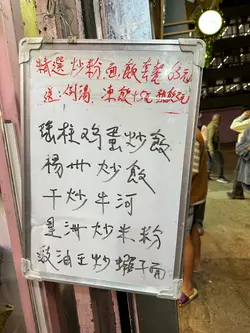 精選炒粉面飯套餐 65元
送:例湯、凍飲+5元 熱飲3元
瑤柱鸡蛋炒飯
楊州炒飯
干炒牛河
星洲炒米粉
豉油王炒